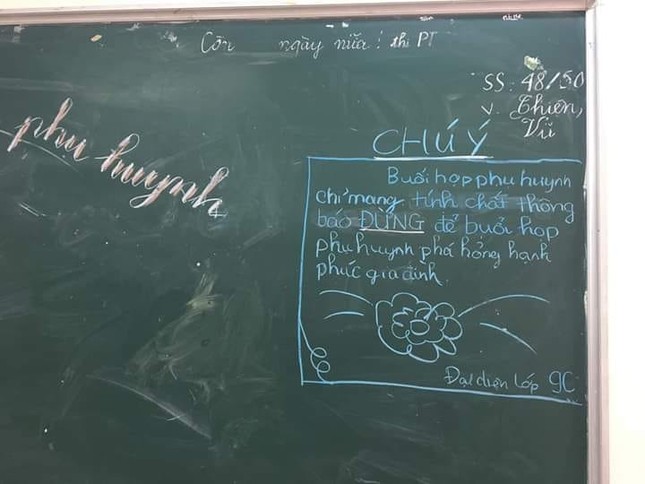 Còn ngày nữa: thi PT
SS: 48/50
V. Thiện,
Vũ
phụ huynh
CHÚ Ý
Buổi họp phụ huynh
chỉ mang tính chất thông
báo ĐỪNG để buổi họp
phụ huynh phá hỏng hạnh
phúc gia đình.
Đại diện lớp 9C